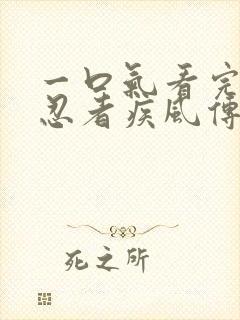 一口氣看完
忍者疾風傳
死之所